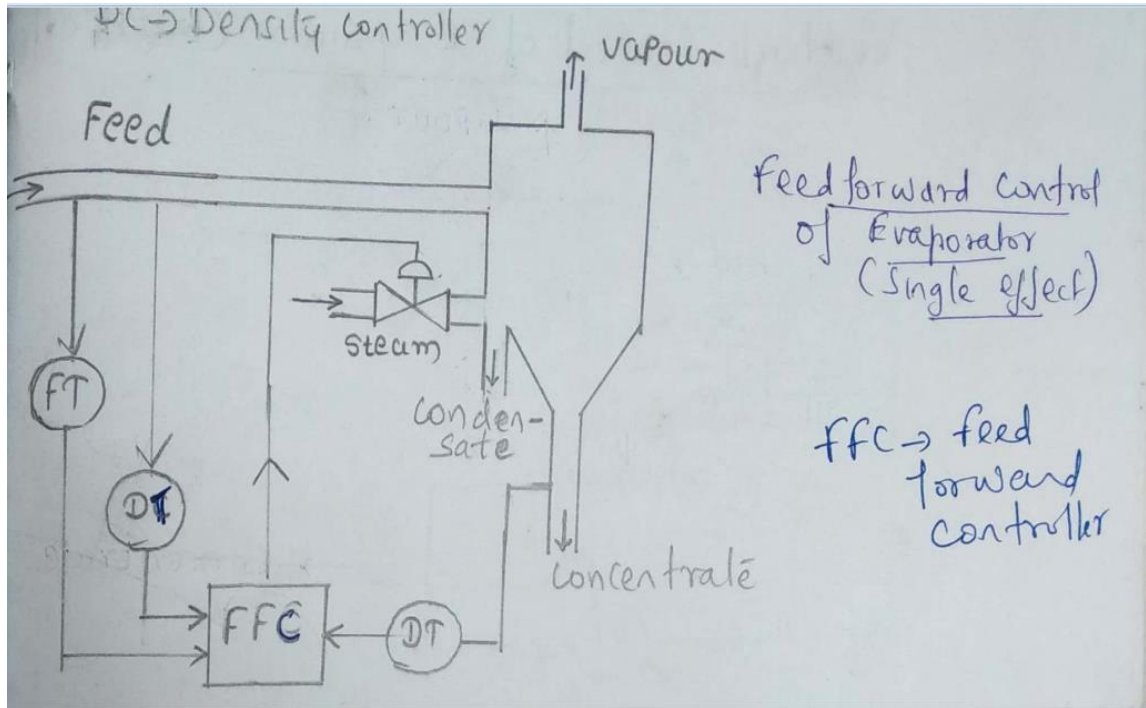 DC → Density controller
vapour
Feed
Feed forward control
of Evaporator
(Single effect)
steam
FT
conden-
sate
FFC → feed
forward
controller
DT
concentrate
FFC
DT